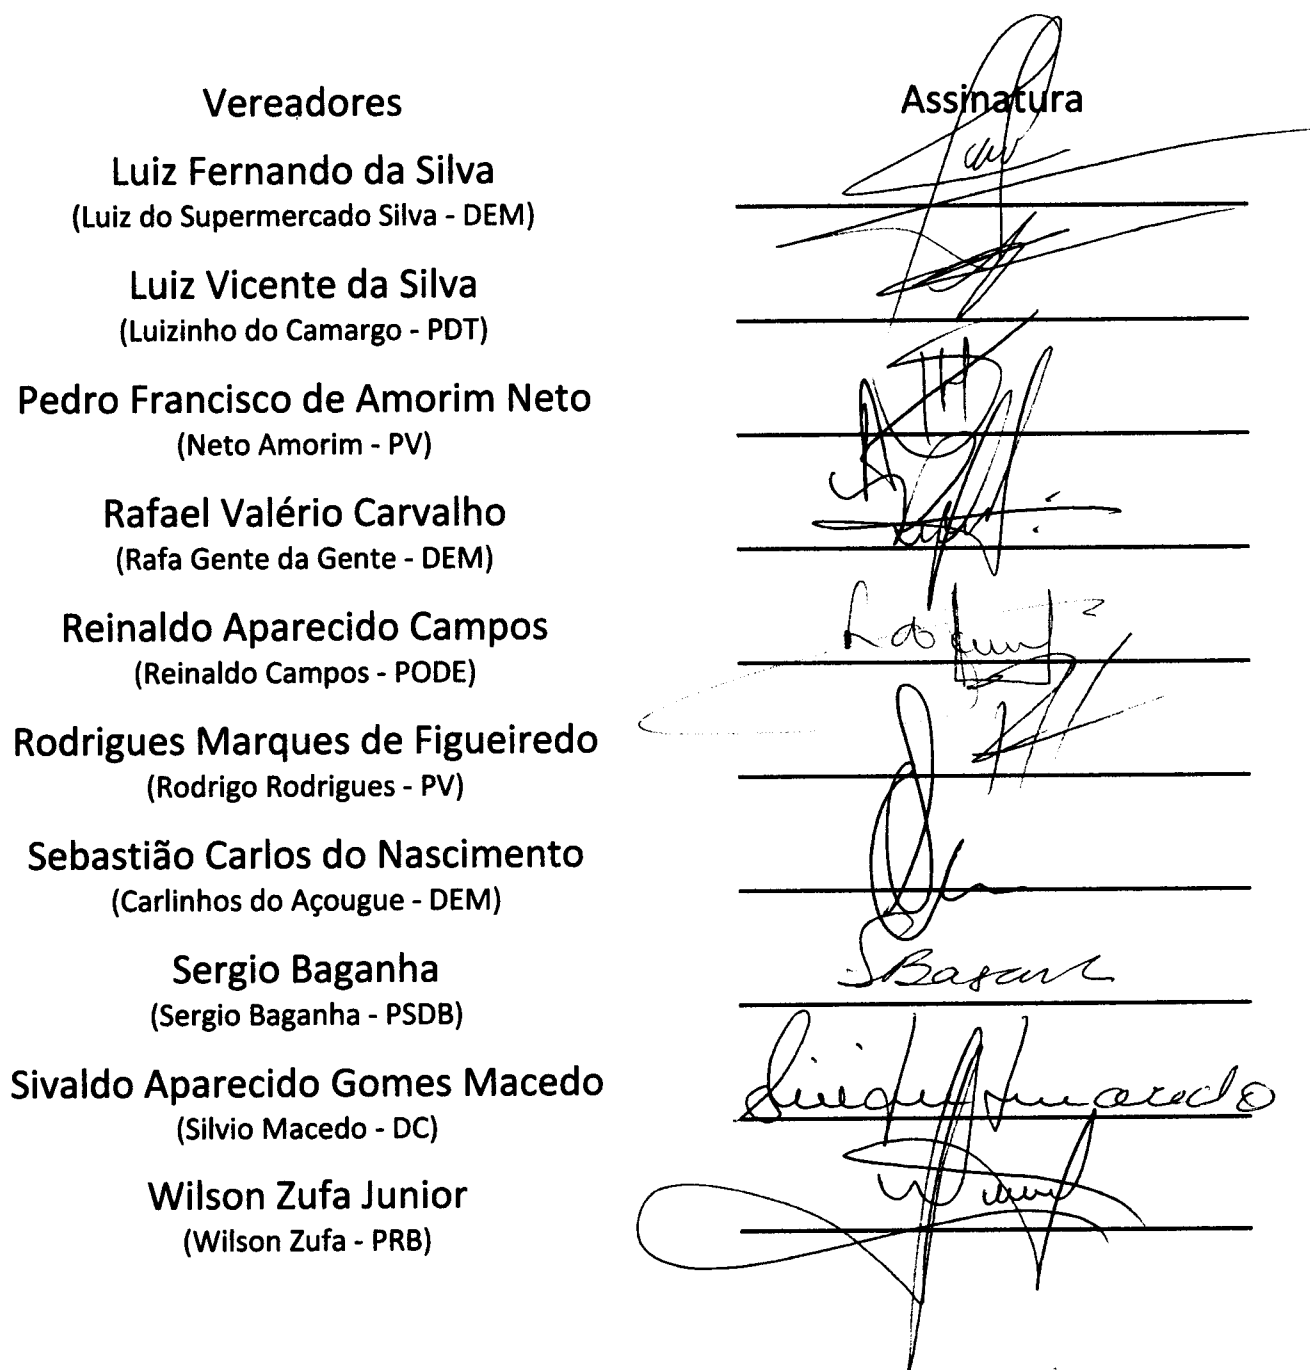 Vereadores Assinatura
Luiz Fernando da Silva
(Luiz do Supermercado Silva - DEM)
Luiz Vicente da Silva
(Luizinho do Camargo - PDT)
Pedro Francisco de Amorim Neto
(Neto Amorim - PV)
Rafael Valério Carvalho
(Rafa Gente da Gente - DEM)
Reinaldo Aparecido Campos
(Reinaldo Campos - PODE)
Rodrigues Marques de Figueiredo
(Rodrigo Rodrigues - PV)
Sebastião Carlos do Nascimento
(Carlinhos do Açougue - DEM)
Sergio Baganha
(Sergio Baganha - PSDB)
Sivaldo Aparecido Gomes Macedo
(Silvio Macedo - DC)
Wilson Zufa Junior
(Wilson Zufa - PRB)